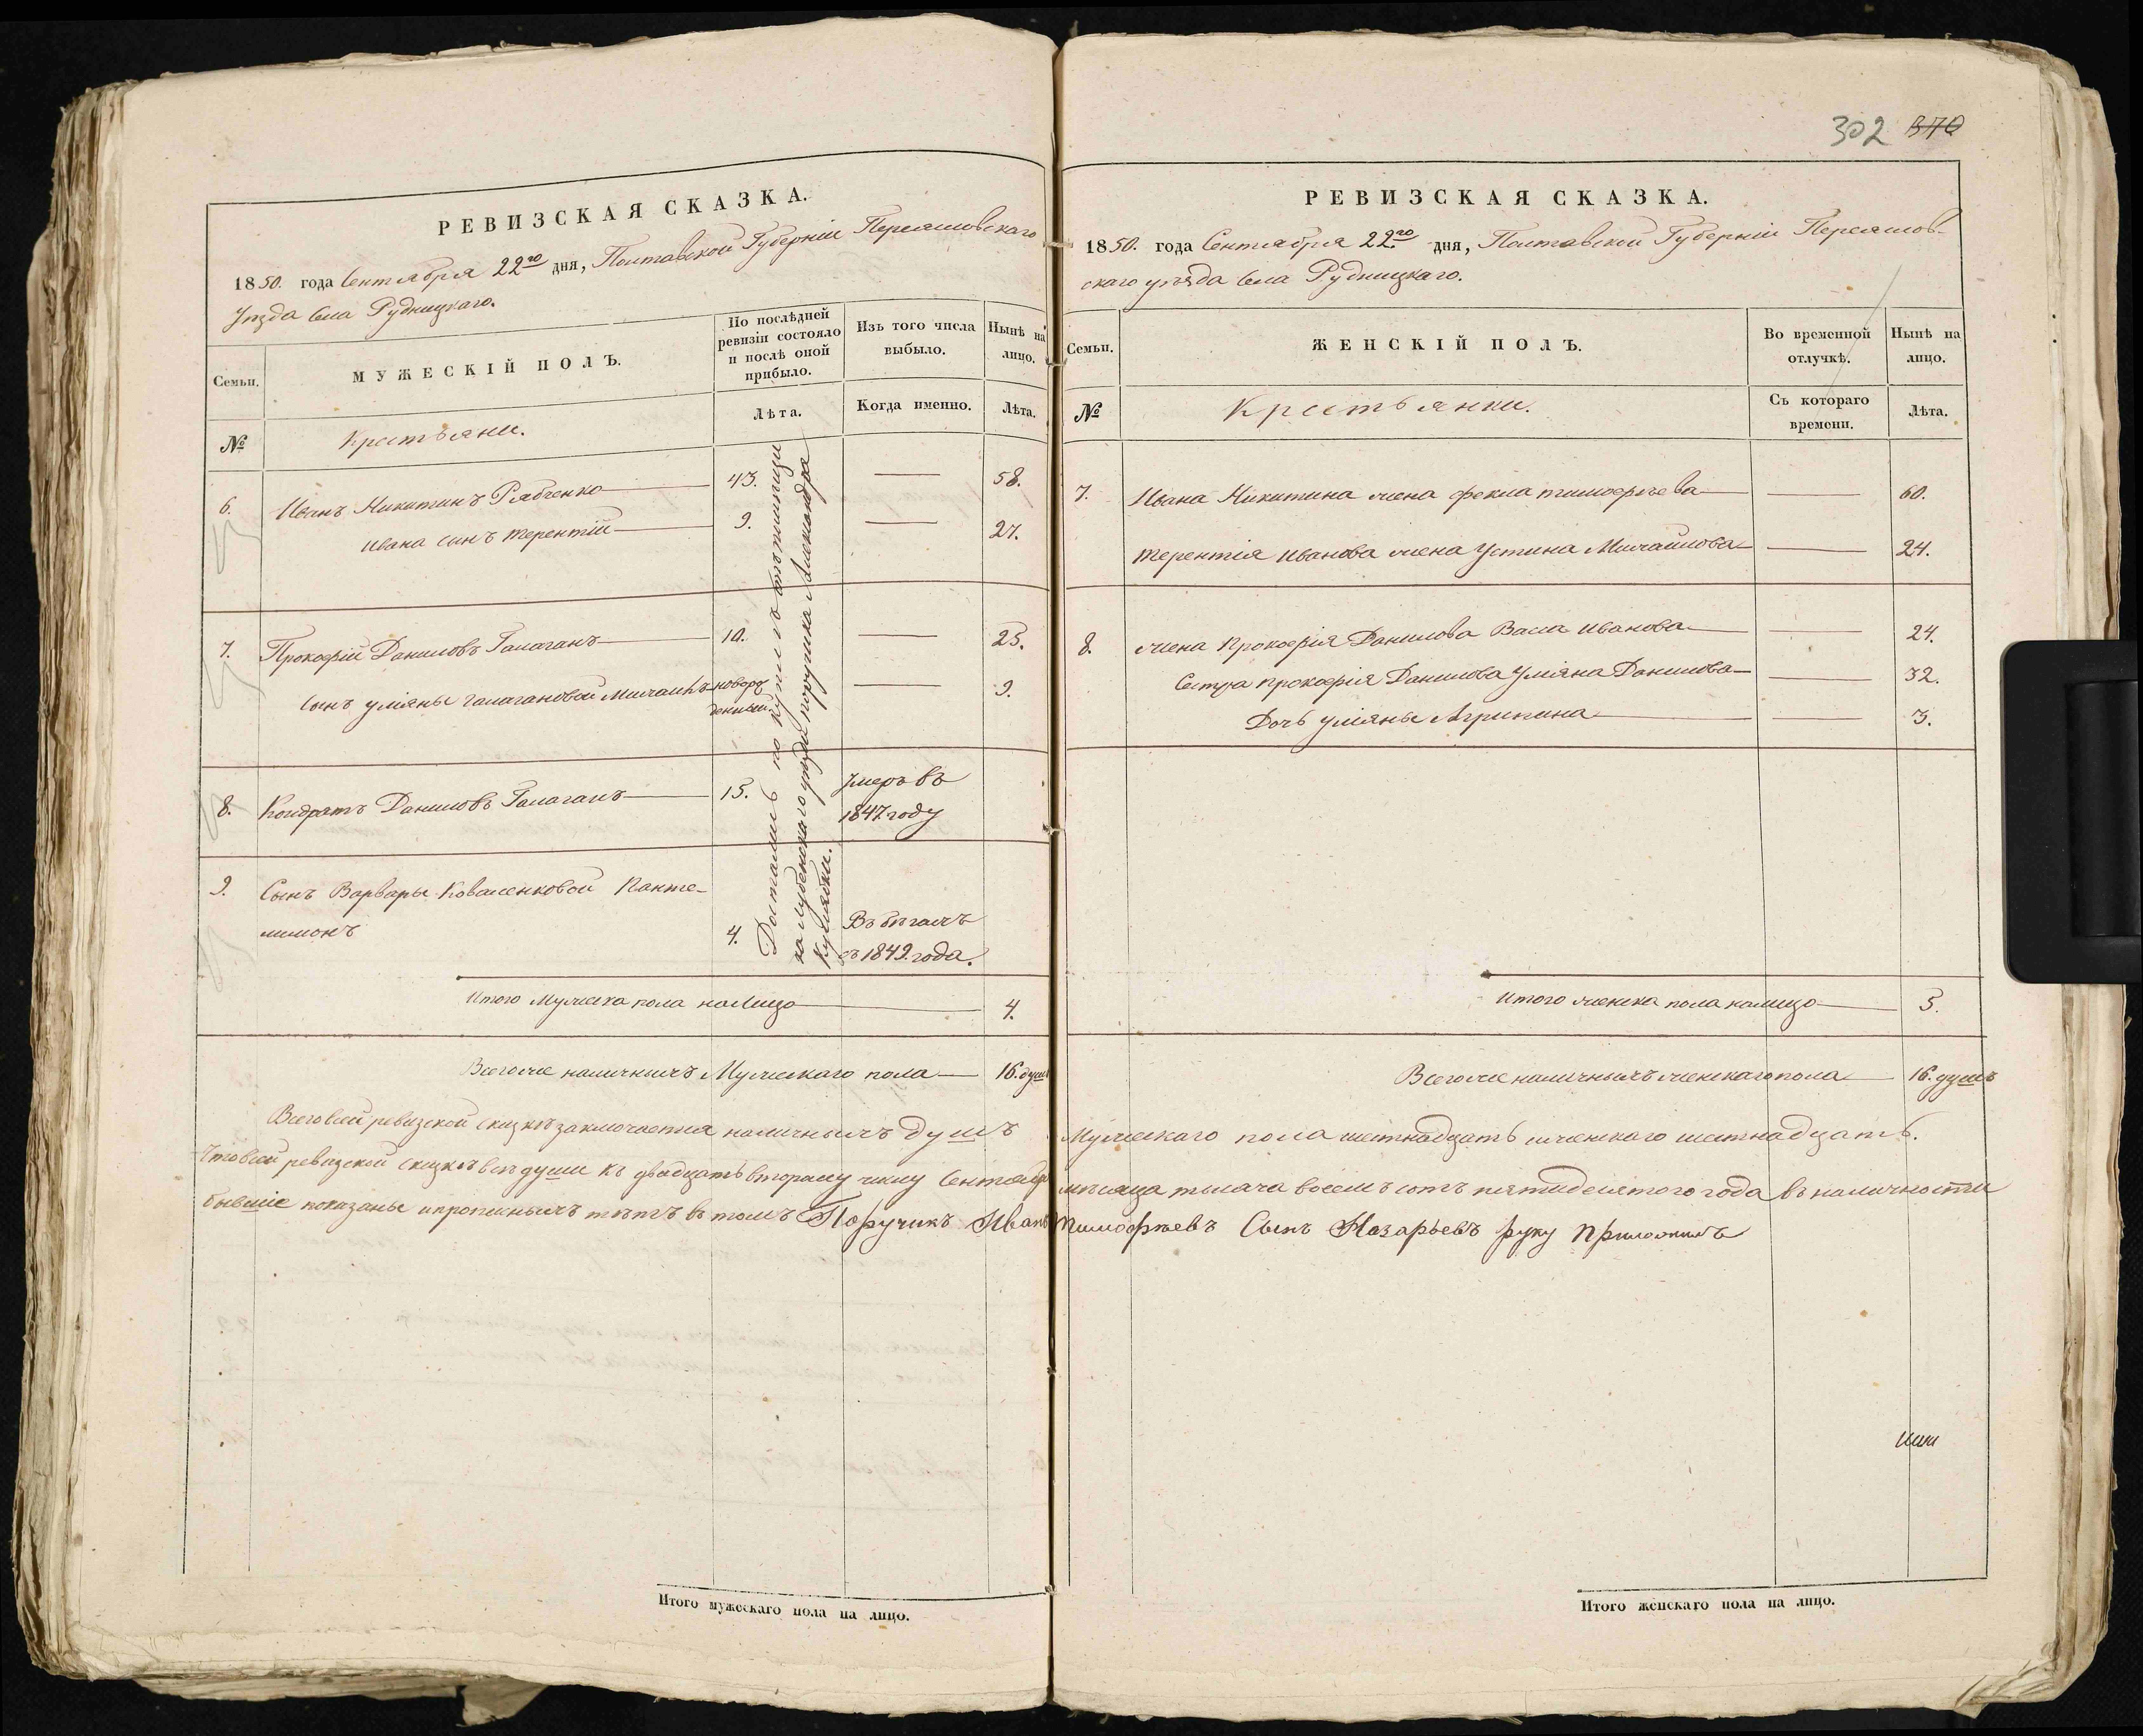 302 370
РЕВИЗСКАЯ СКАЗКА.
1850. года Сентября 22го дня, Полтавской Губерніи Переяшовскаго
Уѣзда Села Рудницкаго.
Семьи.
МУЖЕСКІЙ ПОЛЪ.
По послѣдней ревизіи состояло и послѣ оной прибыло.
Изъ того числа выбыло.
Нынѣ на лицо.
№
Крестьяни.
Лѣта.
Когда именно.
Лѣта.
6. Иванъ Никитинъ Рябченко 43. 58.
Ивана сынъ Терентій 9. 27.
7. Прокофій Даниловъ Галаганъ 10. 25.
Сынъ Уліяны Галагановой Михаилъ новорожденный. 9.
8. Кондратъ Даниловъ Галаганъ 15. Умеръ въ
1847. году
9. Сынъ Варвары Коваленковой Панте-
лимонъ 4. Въ бѣгахъ
съ 1849. года.
Достались по купли отъ помѣщицы
на Лубенскаго уѣзда поручика Александра
Итого Мужеска пола на Лицо 4.
Всего же наличныхъ Мужескаго пола 16. душъ
РЕВИЗСКАЯ СКАЗКА.
1850. года Сентября 22го дня, Полтавской Губерніи Переяшов-
скаго уѣзда Села Рудницкаго.
Семьи.
ЖЕНСКІЙ ПОЛЪ.
Во временной отлучкѣ.
Нынѣ на лицо.
№
Крестьянки.
Съ котораго времени.
Лѣта.
7. Ивана Никитина жена Фекла Тимофѣева 60.
Терентія Иванова жена Устина Михайлова 24.
8. Жена Прокофія Данилова Васа Иванова 24.
Сестра Прокофія Данилова Уліяна Данилова 32.
Дочь Уліяны Агрипина 3.
Итого женска пола налицо 5.
Всего же наличныхъ женскаго пола 16. душъ
Всего въ сей ревизской сказкѣ заключается наличныхъ душъ Мужескаго пола шестнадцать и женскаго шестнадцать.
Что въ сей ревизской сказкѣ всѣ души къ двадцать второму числу Сентября мѣсяца тысяча восемъ сотъ пятидесятого года въ наличности
бывшіе показаны и пропиныхъ нѣтъ въ томъ Поручикъ Иванъ Тимофѣевъ Сынъ Назарьевъ руку приложилъ
Итого мужескаго пола на лицо.
Итого женскаго пола на лицо.